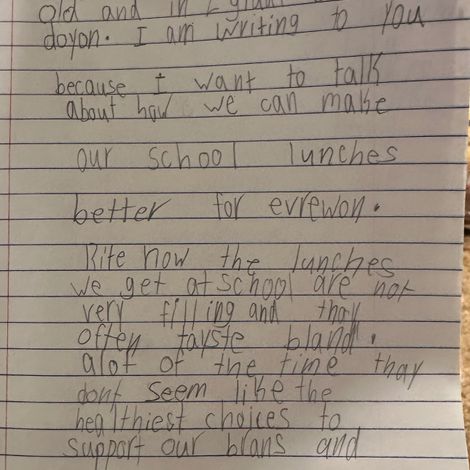 old and in
doyon. I am writing to you
because I want to talk
about how we can make
our school lunches
better for evrewon.
Rite now the lunches
we get at school are not
very filling and thay
often tayste bland.
alot of the time thay
dont seem like the
healthiest choices to
support our brans and